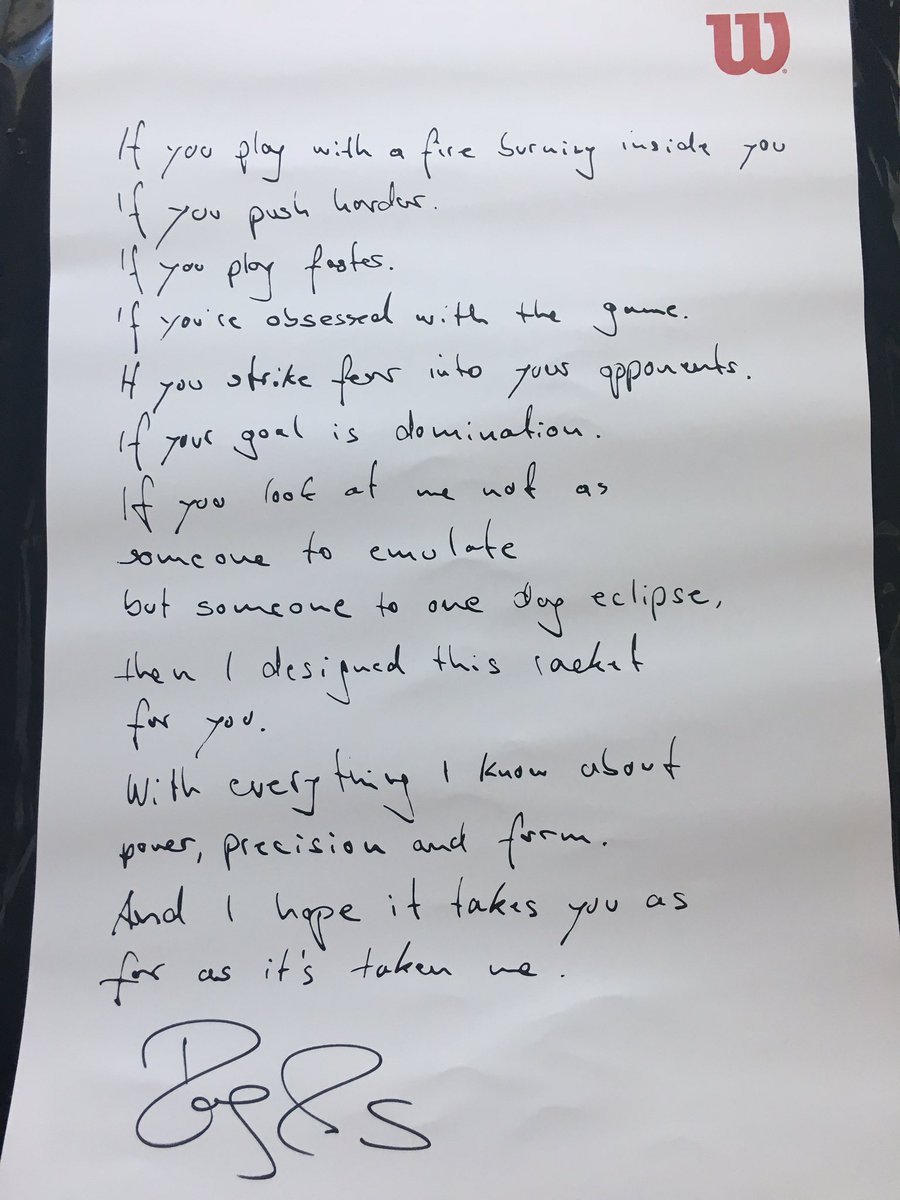 W
If you play with a fire burning inside you
If you push harder.
If you play faster.
If you're obsessed with the game.
If you strike fear into your opponents.
If your goal is domination.
If you look at me not as
someone to emulate
but someone to one day eclipse,
then I designed this racket
for you.
With everything I know about
power, precision and form.
And I hope it takes you as
far as it's taken me.